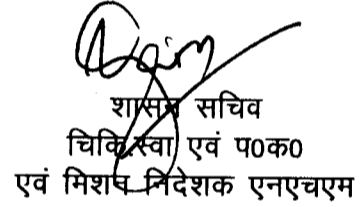 शासन सचिव
चिकि.स्वा एवं प०क०
एवं मिशन निदेशक एनएचएम